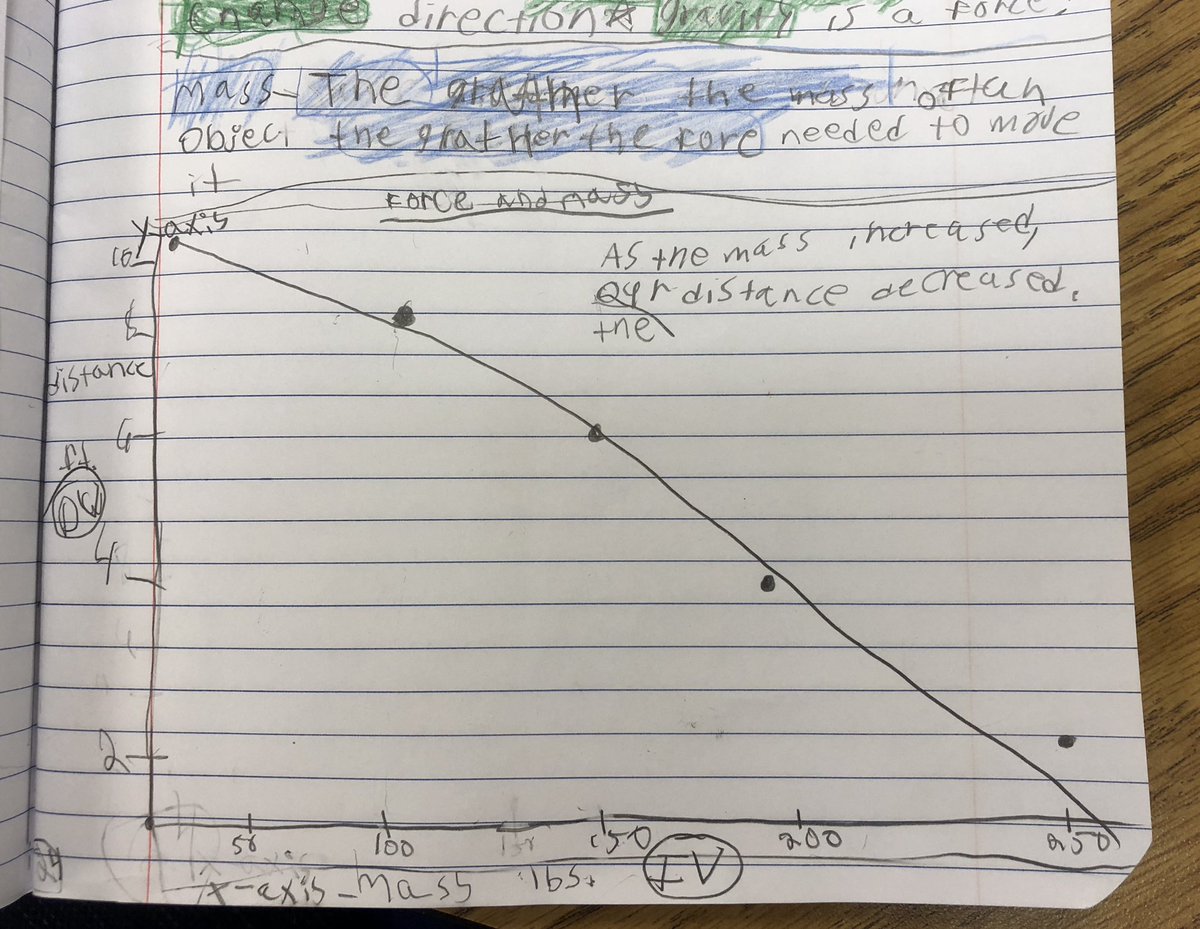 change direction ☆ gravity is a force.
Mass- The grather the mass of an
Object the grather the force needed to move
it
Force and Mass
y-axis
As the mass increased,
our distance decreased.
the
10
8
distance
6
ft.
DV
4
2
50 100 150 200 250
x-axis - Mass lbs. IV